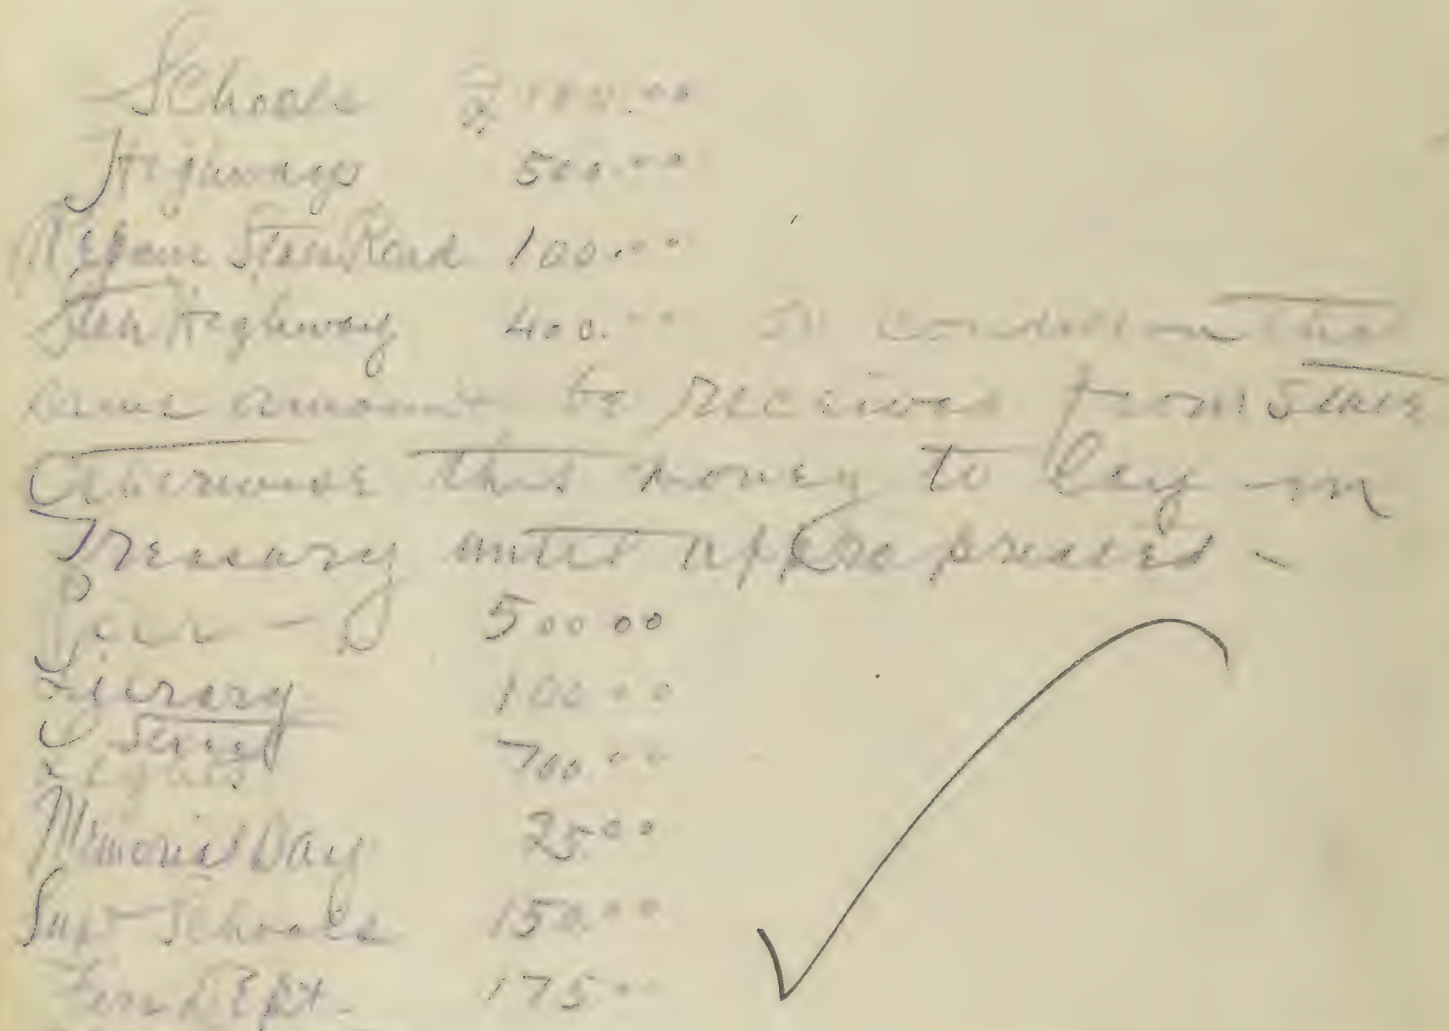 Schools 2100.00
Highways 500.00
Repair State Road 100.00
State Highway 400.00 On condition the
same amount be received from State
Otherwise this money to lay in
Treasury until appropriated -
500 00
Library 100 00
Street
Lights 700.00
Memorial Day 25 00
Supt Schools 150.00
Fire Dept. 175 00